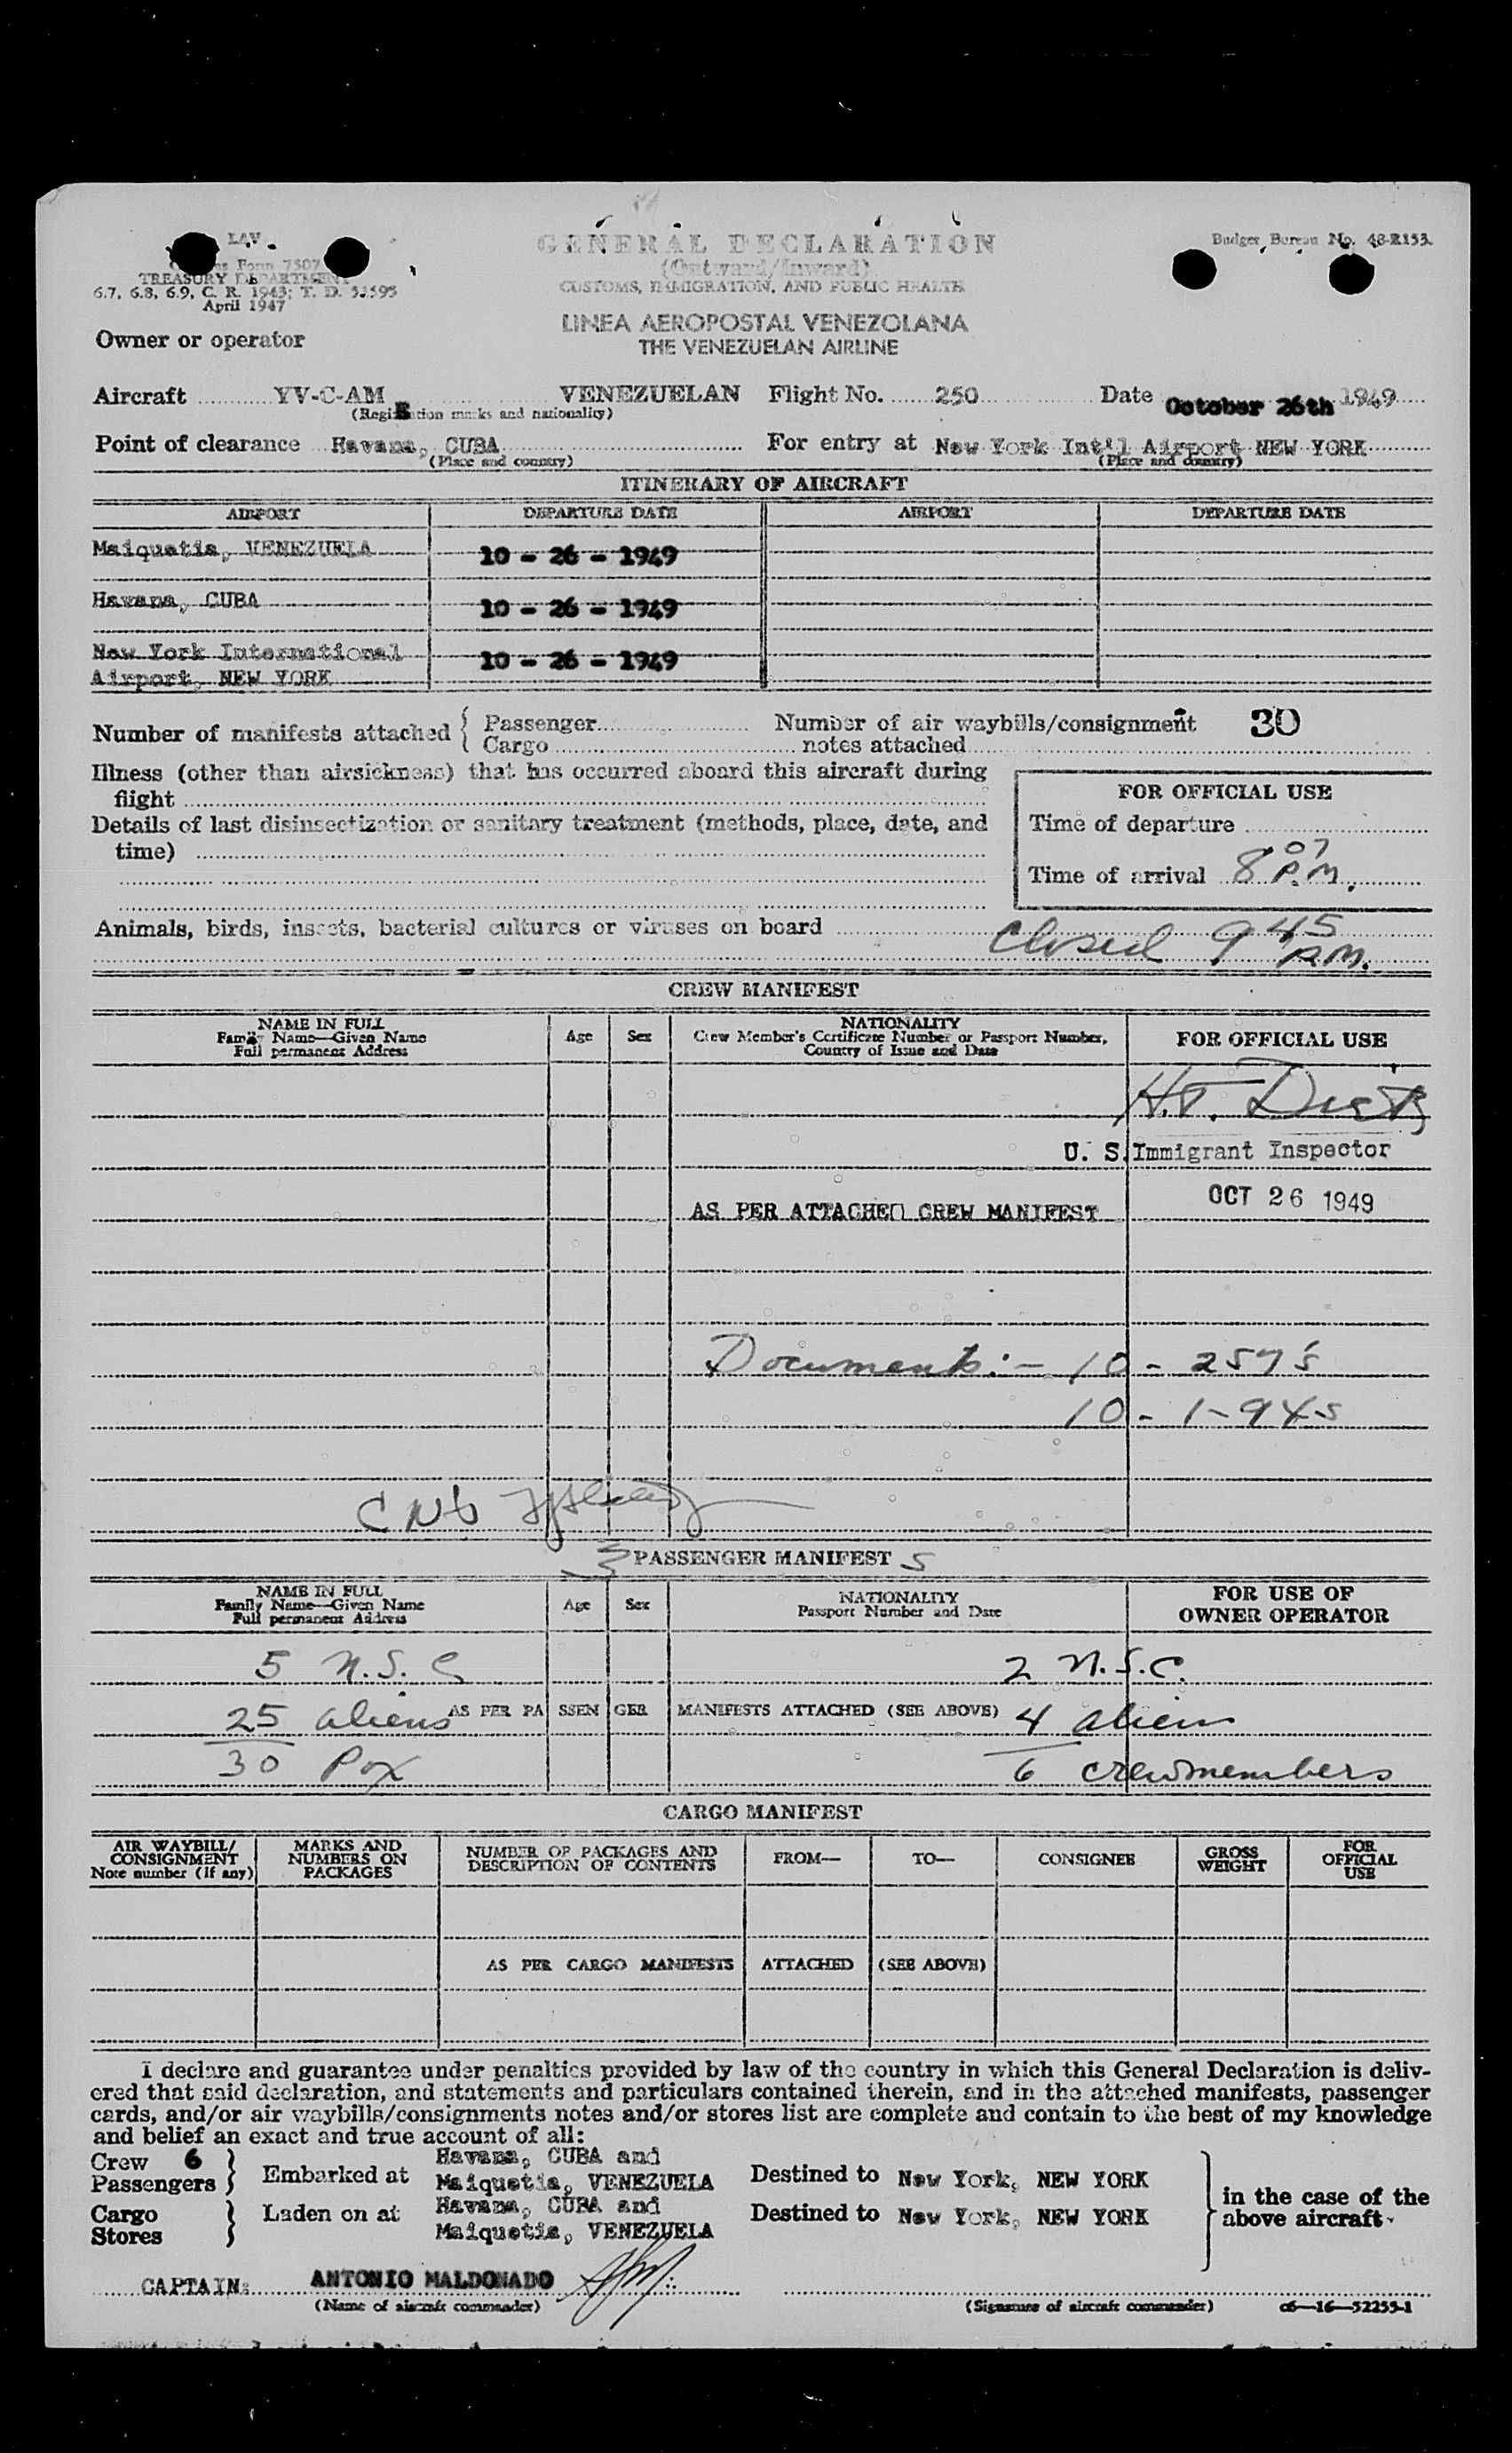 LAV
Form 7507
TREASURY DEPARTMENT
6.7, 6.8, 6.9, C. R. 1943; T. D. 51595
April 1947
GENERAL DECLARATION
(Outward/Inward)
CUSTOMS, IMMIGRATION, AND PUBLIC HEALTH
Budget Bureau No. 48-R153.
LINEA AEROPOSTAL VENEZOLANA
THE VENEZUELAN AIRLINE
Owner or operator
Aircraft YV-C-AM VENEZUELAN Flight No. 250 Date October 26th 1949
(Registration marks and nationality)
Point of clearance Havana, CUBA For entry at New York Int'l Airport NEW YORK
(Place and country) (Place and country)
ITINERARY OF AIRCRAFT
AIRPORT DEPARTURE DATE AIRPORT DEPARTURE DATE
Maiquetia, VENEZUELA 10 - 26 - 1949
Havana, CUBA 10 - 26 - 1949
New York International
Airport, NEW YORK 10 - 26 - 1949
Number of manifests attached { Passenger Number of air waybills/consignment 30
Cargo notes attached
Illness (other than airsickness) that has occurred aboard this aircraft during
flight
Details of last disinsectization or sanitary treatment (methods, place, date, and
time)
FOR OFFICIAL USE
Time of departure
Time of arrival 8 07 P.M.
Animals, birds, insects, bacterial cultures or viruses on board
Closed 9 45 P.M.
CREW MANIFEST
NAME IN FULL
Family Name—Given Name
Full permanent Address
Age Sex
NATIONALITY
Crew Member's Certificate Number or Passport Number,
Country of Issue and Date
FOR OFFICIAL USE
U. S. Immigrant Inspector
OCT 26 1949
AS PER ATTACHED CREW MANIFEST
Documents:- 10 - 257's
10 - 1-94s
PASSENGER MANIFEST S
NAME IN FULL
Family Name—Given Name
Full permanent Address
Age Sex
NATIONALITY
Passport Number and Date
FOR USE OF
OWNER OPERATOR
5 N.S.C 2 N.S.C.
25 aliens AS PER PASSENGER MANIFESTS ATTACHED (SEE ABOVE) 4 aliens
30 Pax 6 crewmembers
CARGO MANIFEST
AIR WAYBILL/
CONSIGNMENT
Note number (if any)
MARKS AND
NUMBERS ON
PACKAGES
NUMBER OF PACKAGES AND
DESCRIPTION OF CONTENTS
FROM— TO— CONSIGNEE
GROSS
WEIGHT
FOR
OFFICIAL
USE
AS PER CARGO MANIFESTS ATTACHED (SEE ABOVE)
I declare and guarantee under penalties provided by law of the country in which this General Declaration is deliv-
ered that said declaration, and statements and particulars contained therein, and in the attached manifests, passenger
cards, and/or air waybills/consignments notes and/or stores list are complete and contain to the best of my knowledge
and belief an exact and true account of all:
Crew 6
Passengers } Embarked at Havana, CUBA and
Maiquetia, VENEZUELA Destined to New York, NEW YORK
Cargo
Stores } Laden on at Havana, CUBA and
Maiquetia, VENEZUELA Destined to New York, NEW YORK
in the case of the
above aircraft.
CAPTAIN: ANTONIO MALDONADO
(Name of aircraft commander) (Signature of aircraft commander) c6—16—52255-1